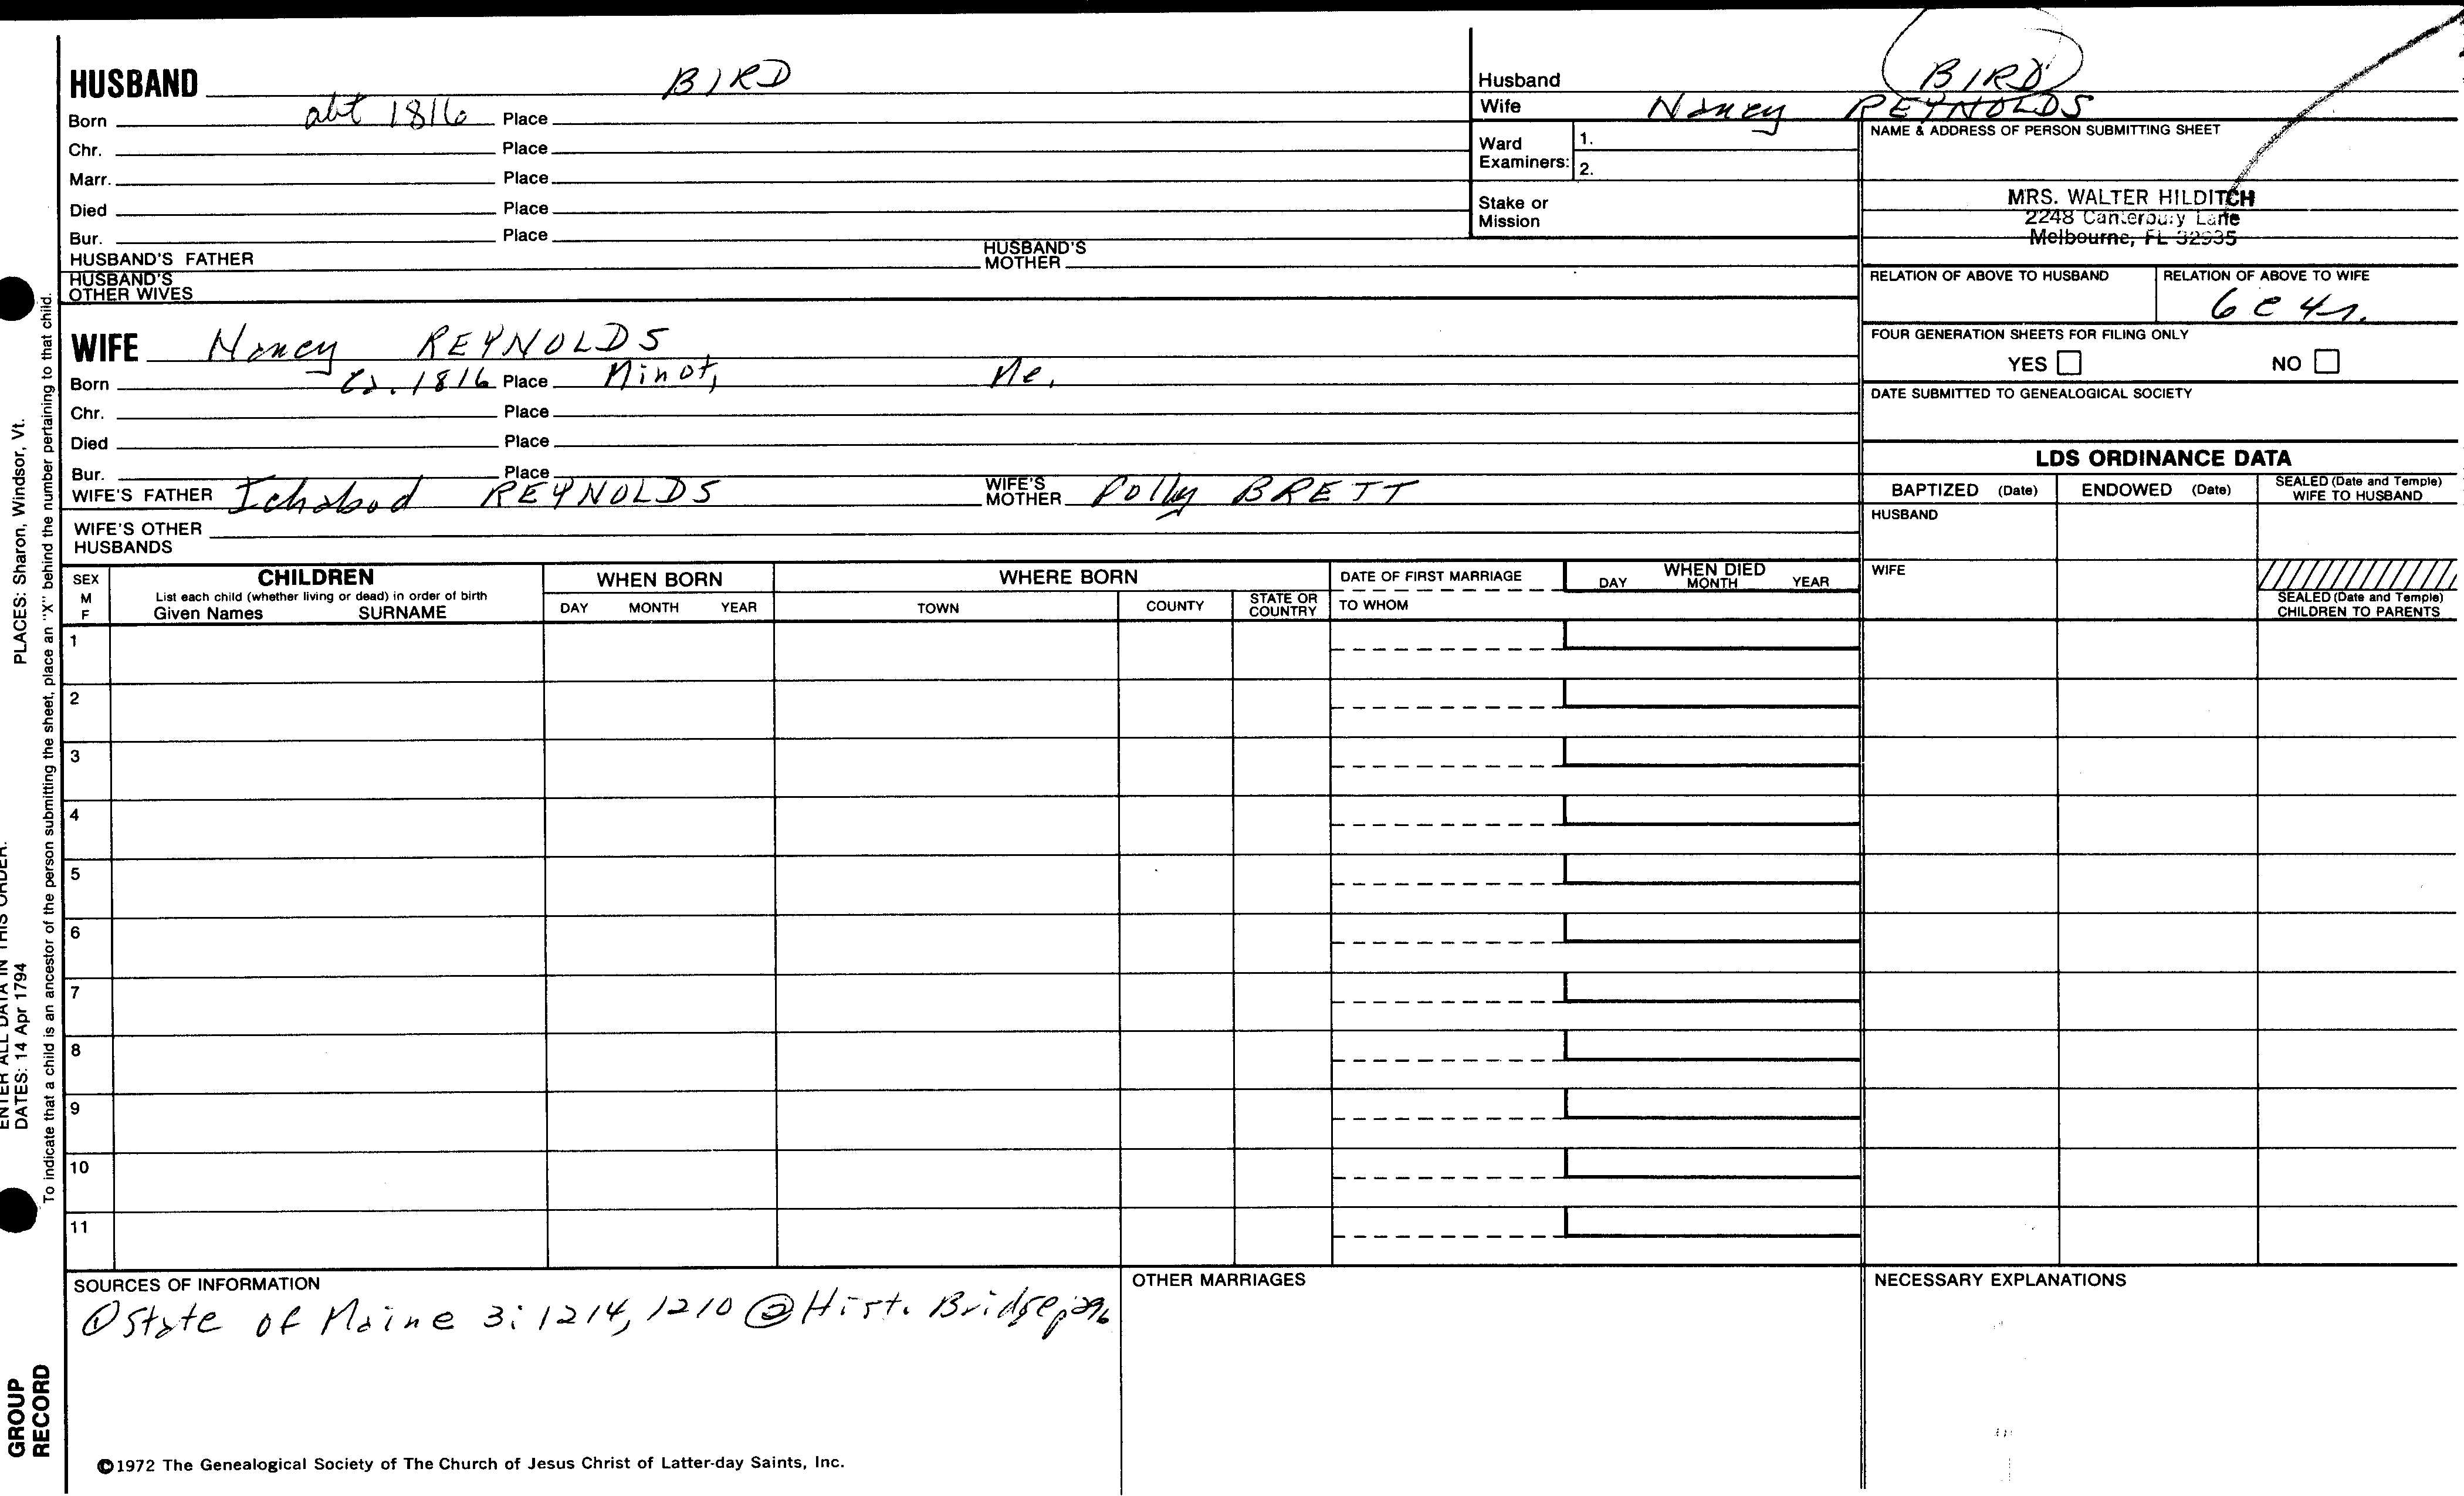 HUSBAND BIRD
Born abt 1816 Place
Chr. Place
Marr. Place
Died Place
Bur. Place
HUSBAND'S FATHER HUSBAND'S MOTHER
HUSBAND'S OTHER WIVES
WIFE Nancy REYNOLDS
Born Ca. 1816 Place Minot, Me.
Chr. Place
Died Place
Bur. Place
WIFE'S FATHER Ichabod REYNOLDS WIFE'S MOTHER Polly BRETT
WIFE'S OTHER HUSBANDS
Husband BIRD
Wife Nancy REYNOLDS
Ward Examiners: 1.
2.
Stake or Mission
NAME & ADDRESS OF PERSON SUBMITTING SHEET
MRS. WALTER HILDITCH
2248 Canterbury Lane
Melbourne, FL 32935
RELATION OF ABOVE TO HUSBAND RELATION OF ABOVE TO WIFE
6 c 4r.
FOUR GENERATION SHEETS FOR FILING ONLY
YES NO
DATE SUBMITTED TO GENEALOGICAL SOCIETY
LDS ORDINANCE DATA
BAPTIZED (Date) ENDOWED (Date) SEALED (Date and Temple) WIFE TO HUSBAND
HUSBAND
WIFE
SEALED (Date and Temple) CHILDREN TO PARENTS
SEX M F
CHILDREN
List each child (whether living or dead) in order of birth
Given Names SURNAME
WHEN BORN
DAY MONTH YEAR
WHERE BORN
TOWN COUNTY STATE OR COUNTRY
DATE OF FIRST MARRIAGE
TO WHOM
WHEN DIED
DAY MONTH YEAR
1
2
3
4
5
6
7
8
9
10
11
SOURCES OF INFORMATION
① State of Maine 3:1214, 1210 ② Hist. Bridge p 296
OTHER MARRIAGES
NECESSARY EXPLANATIONS
©1972 The Genealogical Society of The Church of Jesus Christ of Latter-day Saints, Inc.
PLACES: Sharon, Windsor, Vt.
To indicate that a child is an ancestor of the person submitting the sheet, place an "X" behind the number pertaining to that child.
ENTER ALL DATA IN THIS ORDER:
DATES: 14 Apr 1794
GROUP
RECORD